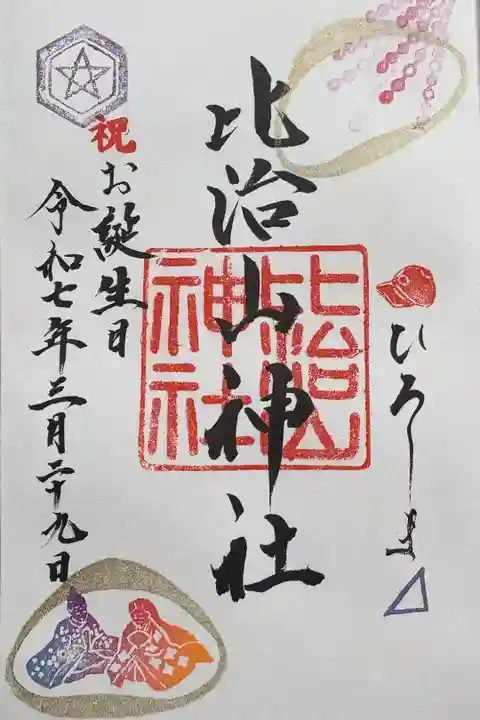 ひろしま
比治山神社
比治山神社
祝お誕生日
令和七年三月二十九日